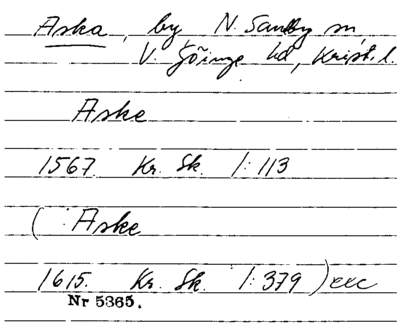 Aska, by N. Sandby sn,
V. Göinge hd, Krist. l.
Aske
1567 Kr. Sk. 1:113
( Aske
1615. Kr. Sk. 1:379 ) etc
Nr 5365.